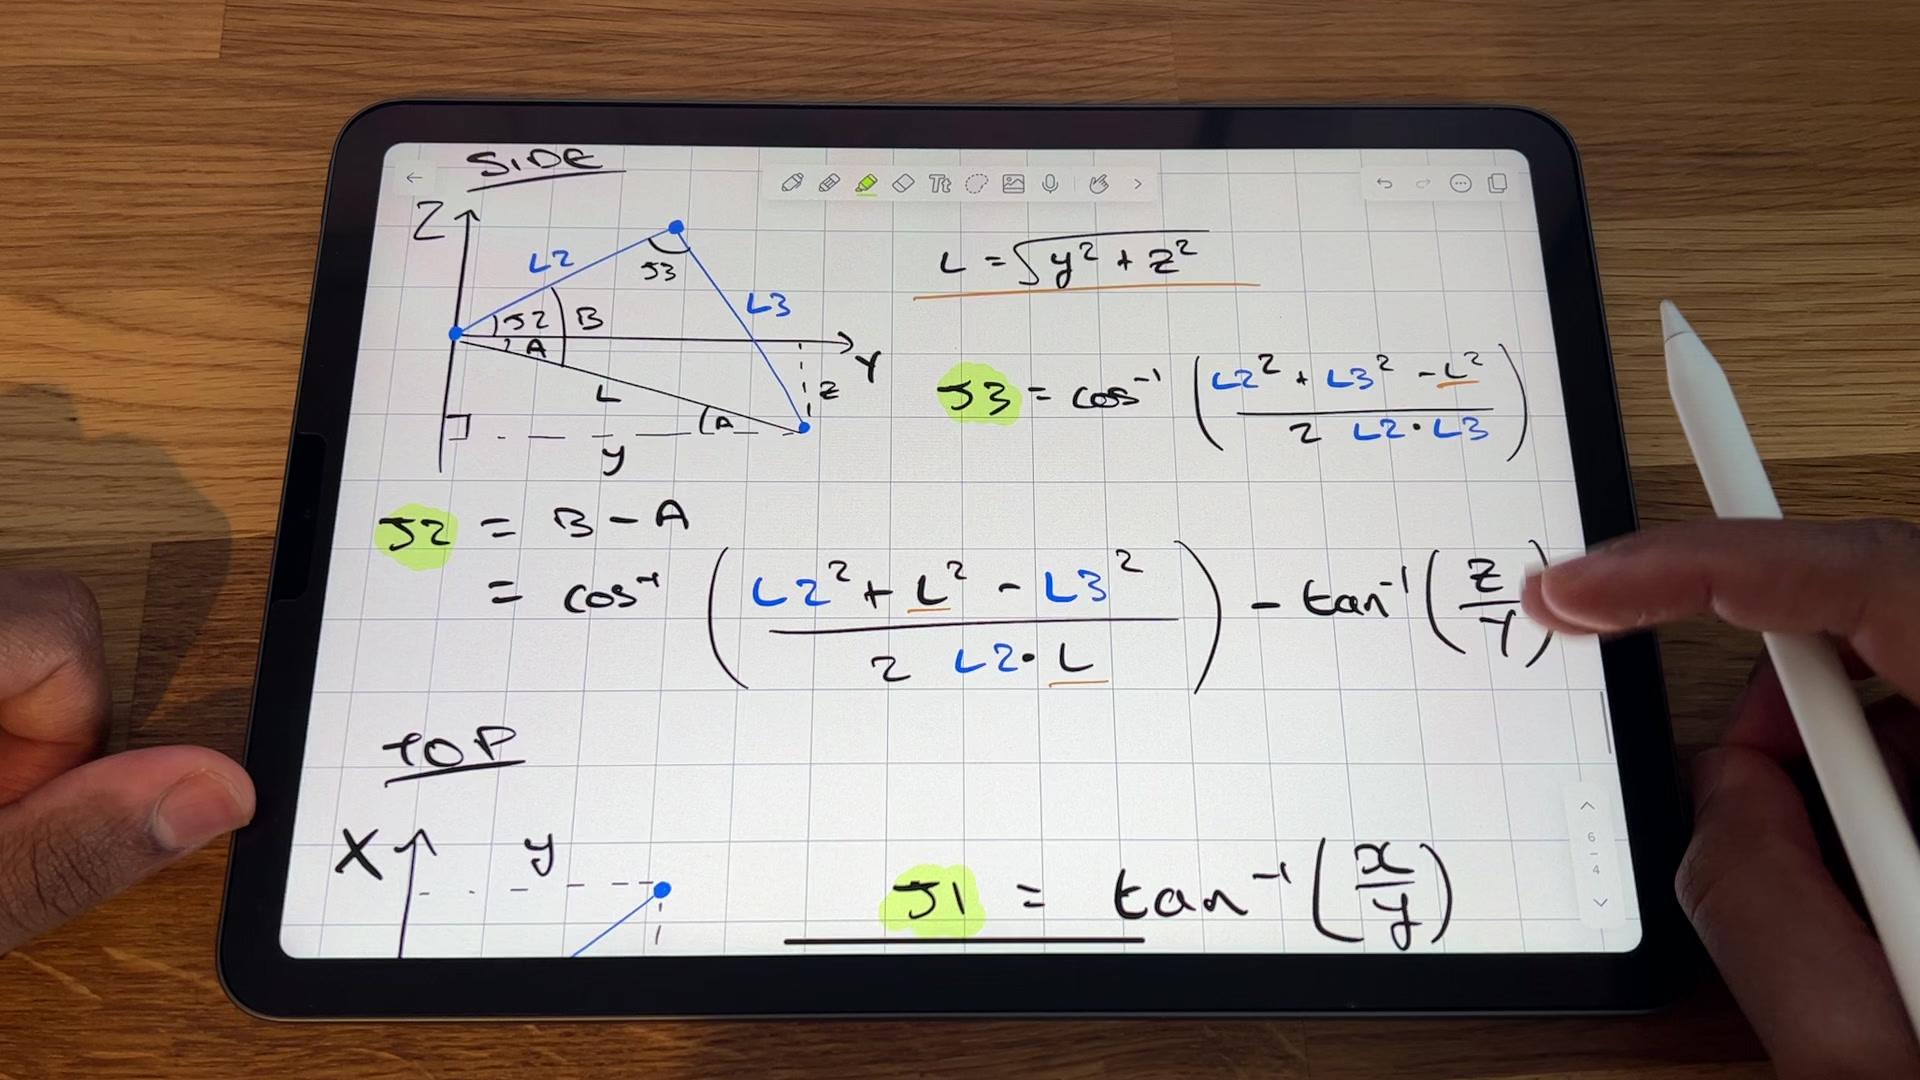 SIDE
Tt
Z
L2
J3
L3
J2
B
A
Y
L
z
A
y
L = √y² + z²
J3 = cos⁻¹ (L2² + L3² - L² / 2 L2 · L3)
J2 = B - A
= cos⁻¹ (L2² + L² - L3² / 2 L2 · L) - tan⁻¹ (Z / Y)
TOP
X
y
J1 = tan⁻¹ (x / y)
6
4